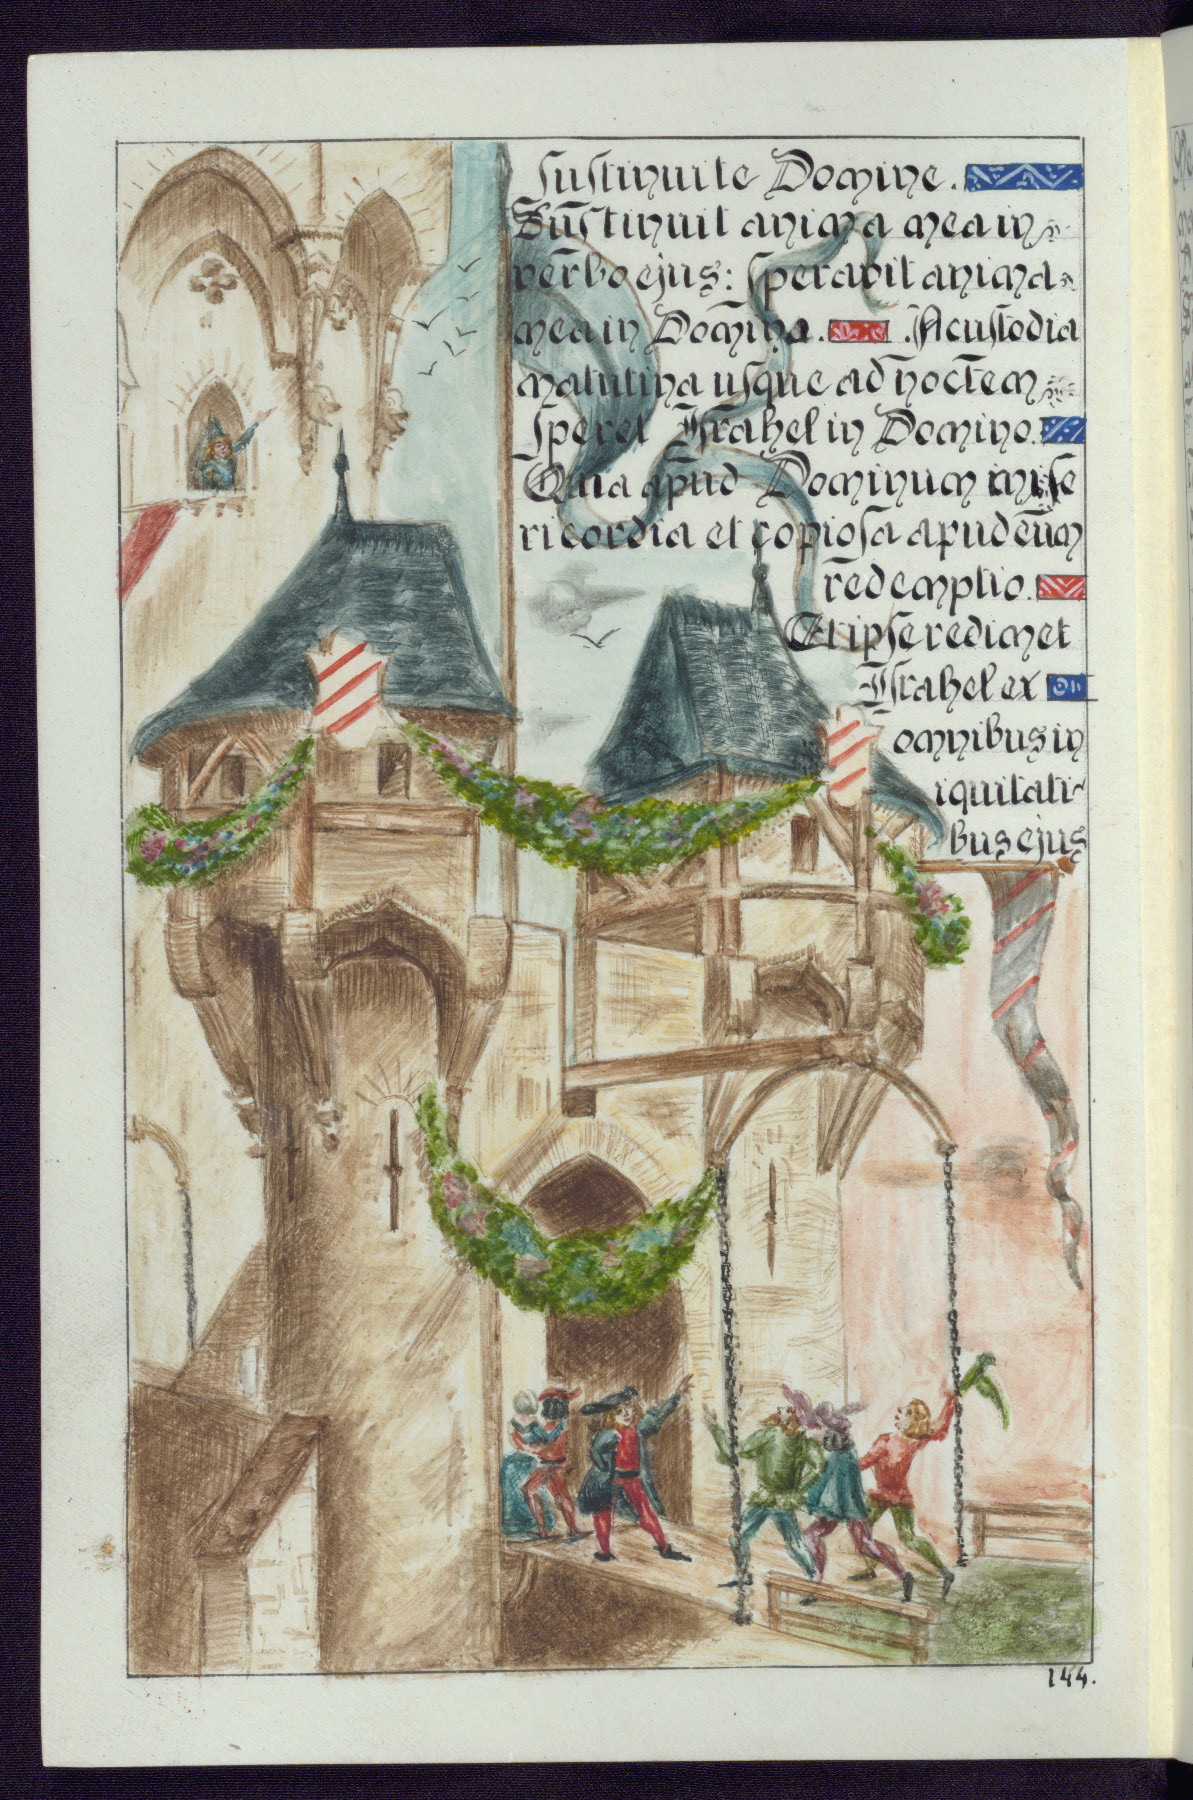 sustinuite Domine.
Sustinuit anima mea in
verbo ejus: speravit anima
mea in Domina. A custodia
matutina usque ad noctem
speret Israhel in Domino.
Quia apud Dominum mise
ricordia et copiosa apud eum
redemptio.
Et ipse redimet
Israhel ex
omnibus in
iquitati-
bus ejus
144.